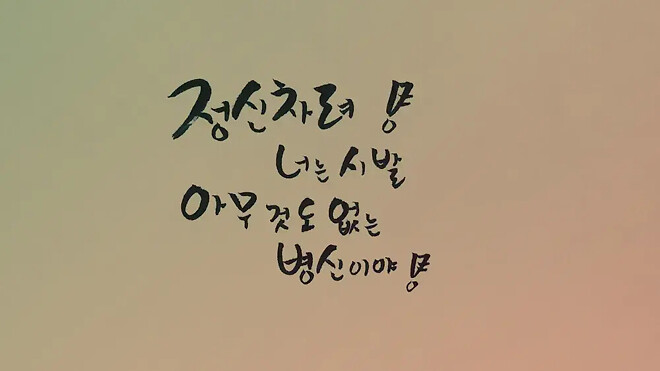 정신차려 !!
너는 시발
아무것도 없는
병신이야 !!